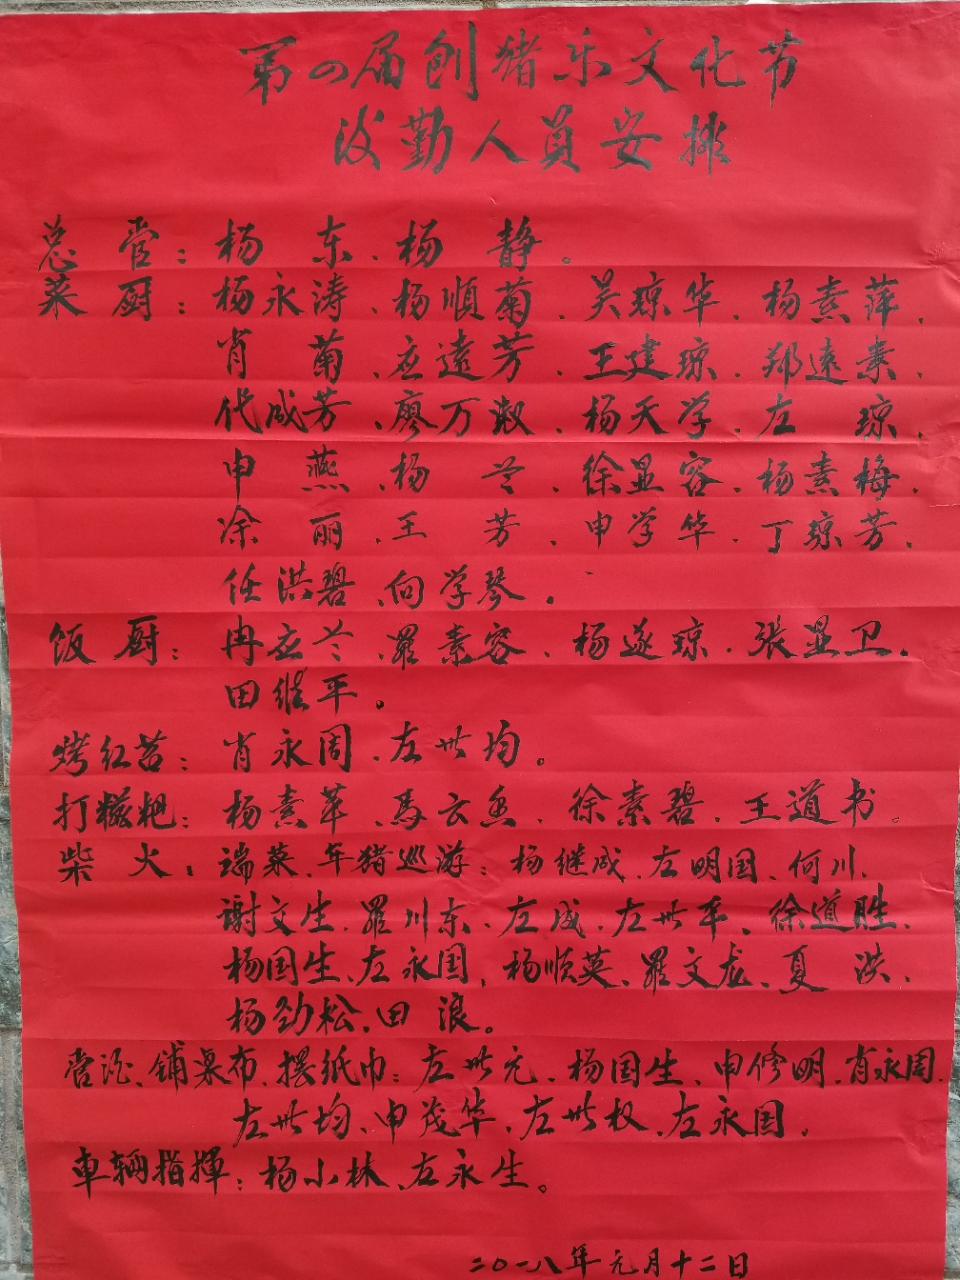 第四届刨猪乐文化节
后勤人员安排
总管:杨东、杨静。
菜厨:杨永涛、杨順菊、吴琼华、杨素萍、
肖菊、应遠芳、王建琼、郑遠素、
代成芳、廖万淑、杨天学、左琼、
申燕、杨兰、徐显容、杨素梅、
凃丽、王芳、申学华、丁琼芳、
任洪碧、向学琴。
饭厨:冉应兰、羅素容、杨遂琼、張显卫。
田继平。
烤红苕:肖永周、左世均。
打糍粑:杨素苹、馬云鱼、徐素碧、王道书。
柴火、端菜、年猪巡游:杨继成、左明国、何川、
谢文生、羅川东、左成、左世平、徐道胜、
杨国生、左永国、杨顺英、羅文龙、夏洪、
杨劲松、田浪。
管酒、铺桌布、摆纸巾:左世元、杨国生、申修明、肖永周、
左世均、申茂华、左世权、左永国、
車辆指揮:杨小林、左永生。
二〇一八年元月十二日